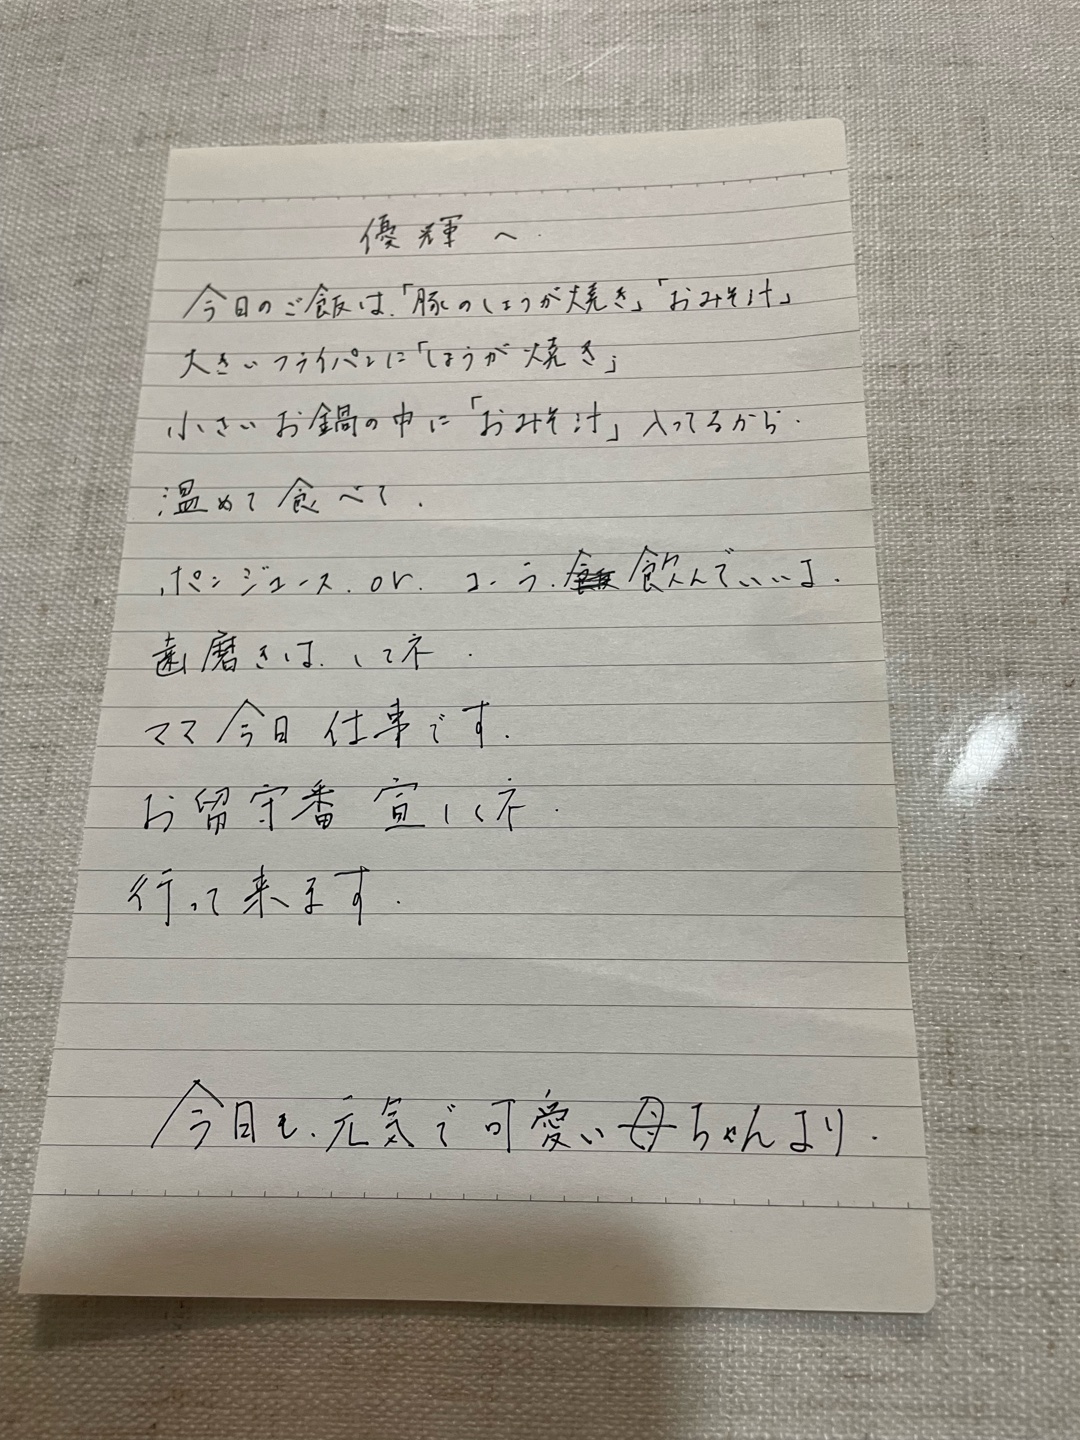 優輝へ.
今日のご飯は、「豚のしょうが焼き」「おみそ汁」
大きいフライパンに「しょうが焼き」
小さいお鍋の中に「おみそ汁」入ってるから.
温めて食べて.
ポンジュース.or.コーラ.飲んでいいよ.
歯磨きは.してネ.
ママ今日仕事です.
お留守番宜しくネ.
行って来ます.
今日も、元気で可愛い母ちゃんより.